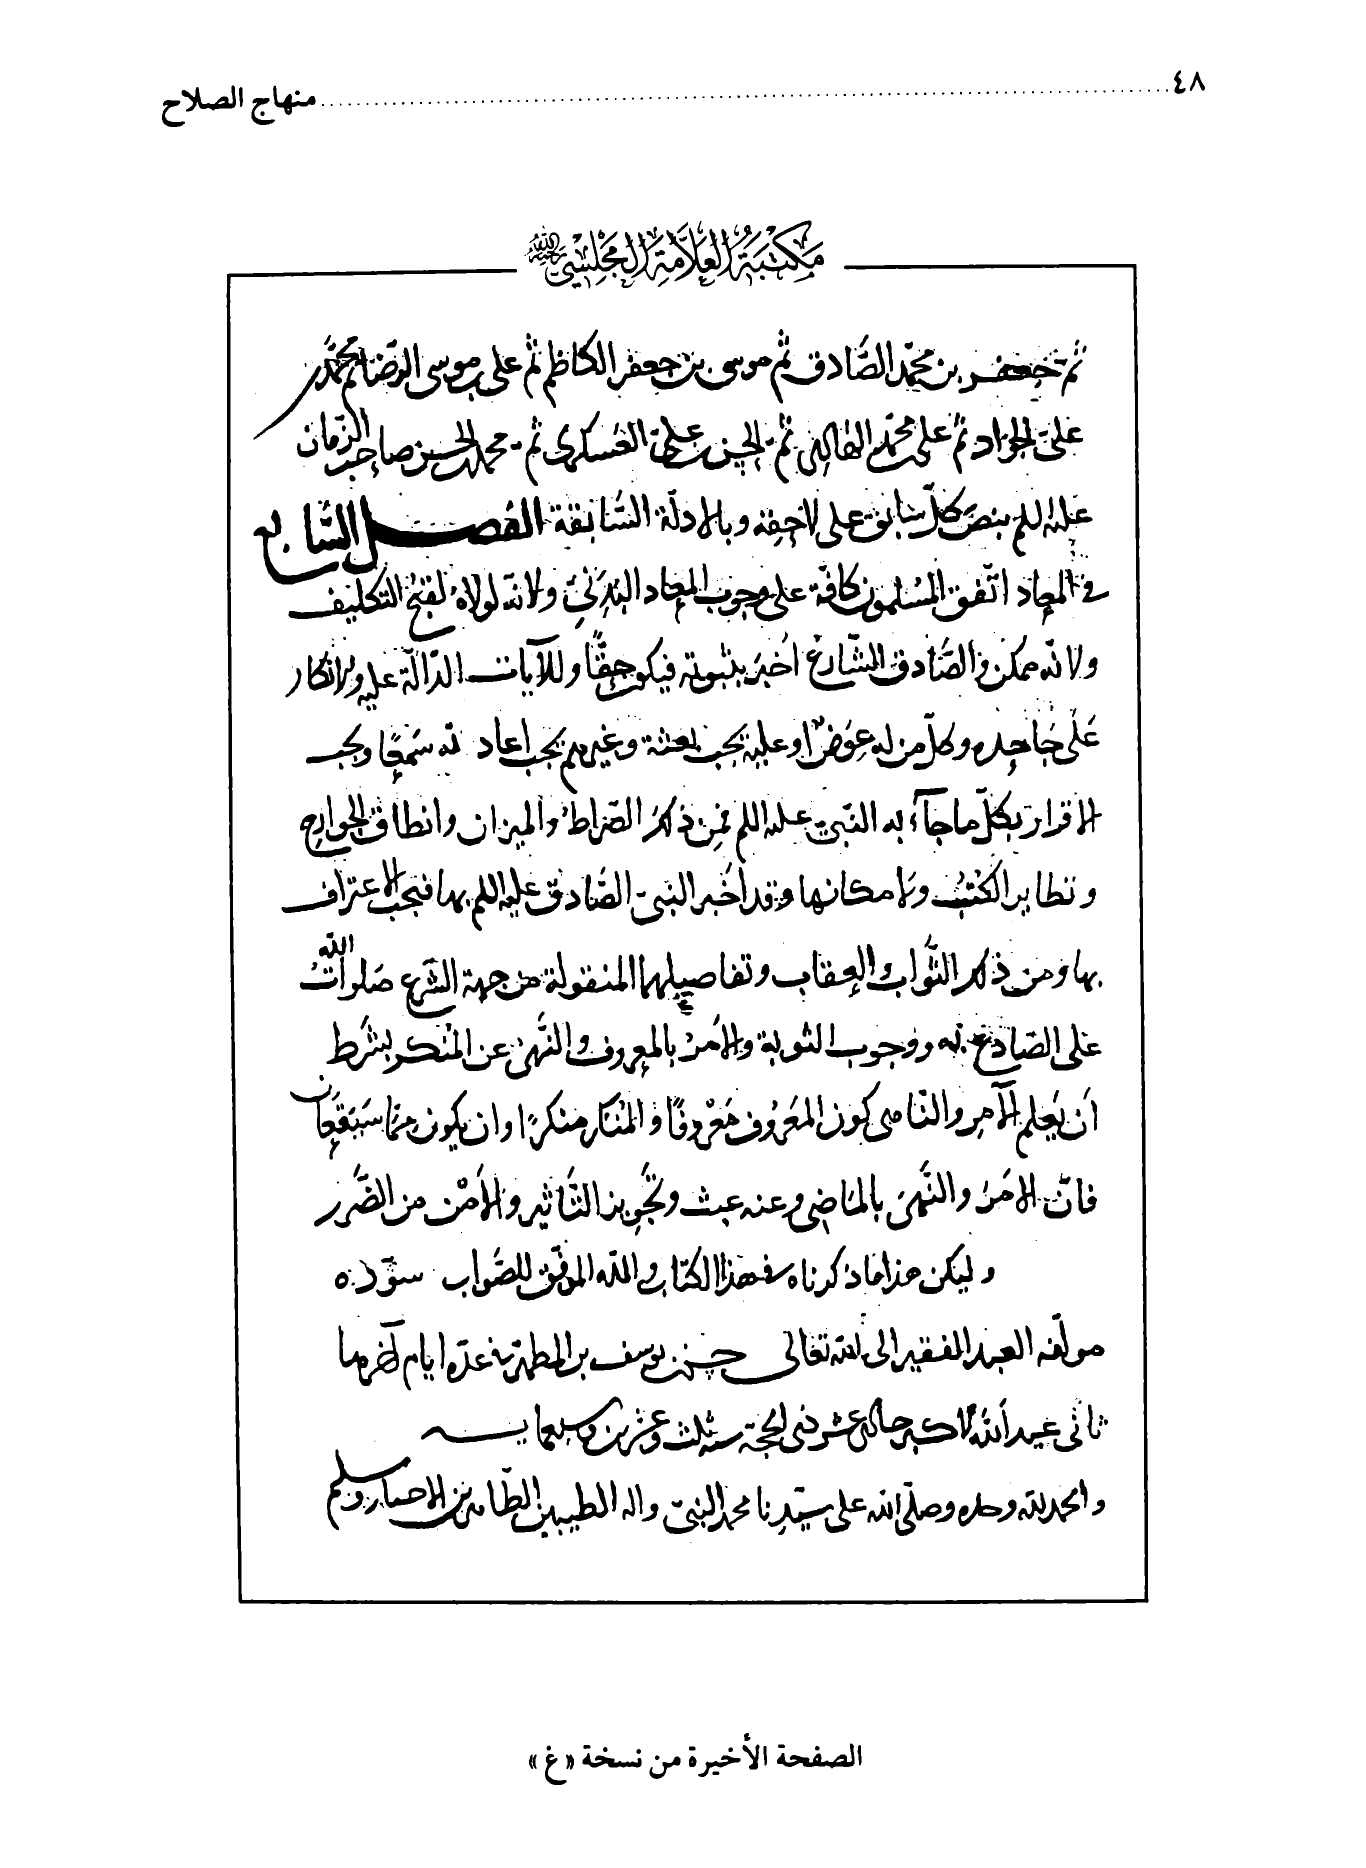 ٤٨ منهاج الصلاح
مكتبة العلامة المجلسي رحمه الله
ثم جعفر بن محمد الصادق ثم موسى بن جعفر الكاظم ثم على بن موسى الرضا ثم محمد بن
علىّ الجواد ثم على بن محمد الهادى ثم الحسن بن على العسكرى ثم محمد بن الحسن صاحب الزمان
عليه السلم بنص كلّ سابق على لاحقه وبالادلّة السّابقة الفصل السّابع
فى المعاد اتّفق المسلمون كافّة على وجوب المعاد البدنىّ ولانّه لولاه لقبح التكليف
ولانّه ممكن والصّادق الشارع اخبر بثبوته فيكون حقّا وللآيات الدّالّة عليه والانكار
على جاحده وكلّ من له عوض او عليه يجب بعثه وغيرهم يجب اعادته سمعًا ويجب
الاقرار بكلّ ما جآء به النبىّ عليه السلم فمن ذلك الصّراط والميزان وانطاق الجوارح
وتطاير الكتب ولامكانها وقد اخبر النبىّ الصّادق عليه السلم بها فيجب الاعتراف
بها ومن ذلك الثّواب والعقاب وتفاصيلهما المنقولة من جهة الشّرع صلوات الله
على الصادع به ووجوب التوبة والامر بالمعروف والنّهى عن المنكر بشرط
ان يعلم الآمر والنّاهى كون المعروف معروفًا والمنكر منكرًا وان يكون ممّا سيقعان
فانّ الامر والنّهى بالماضى وعنه عبث وتجويز التّاثير والامن من الضّرر
وليكن هذا ما ذكرناه فى هذا الكتاب والله الموفق للصّواب سوّده
مولّفه العبد الفقير الى الله تعالى حسن بن يوسف بن المطهر فى عدّة ايام آخرها
ثانى عيد الله الاكبر حادى عشر ذى الحجة سنة ثلث وعشرين وسبعمايه
والحمد لله وحده وصلّى الله على سيّدنا محمد النبىّ واله الطيبين الطّاهرين الاخيار وسلم
الصفحة الأخيرة من نسخة «غ»